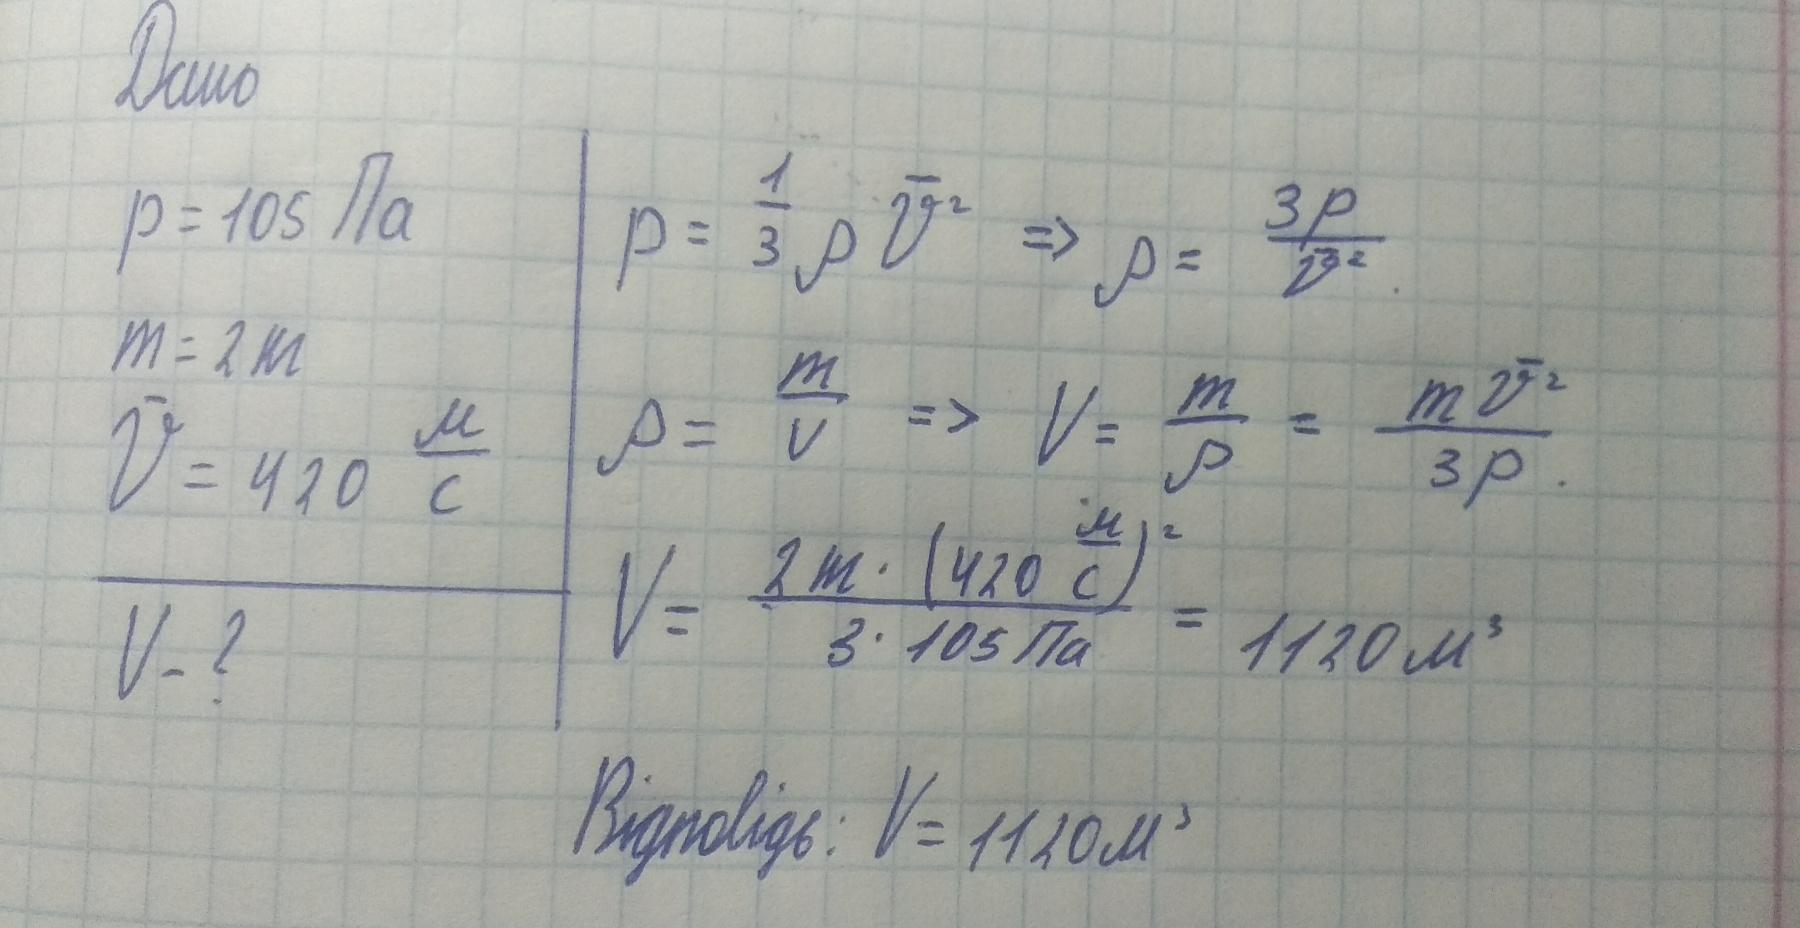 Дано
p = 105 Па
m = 2 т
v̅ = 420 м/с
V - ?
p = 1/3 ρ v̅² => ρ = 3p/v̅².
ρ = m/V => V = m/ρ = mv̅²/3p.
V = 2 т · (420 м/с)² / 3 · 105 Па = 1120 м³
Відповідь: V = 1120 м³